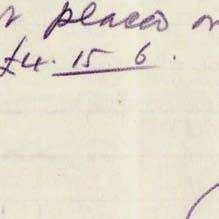 places
£4. 15 6.